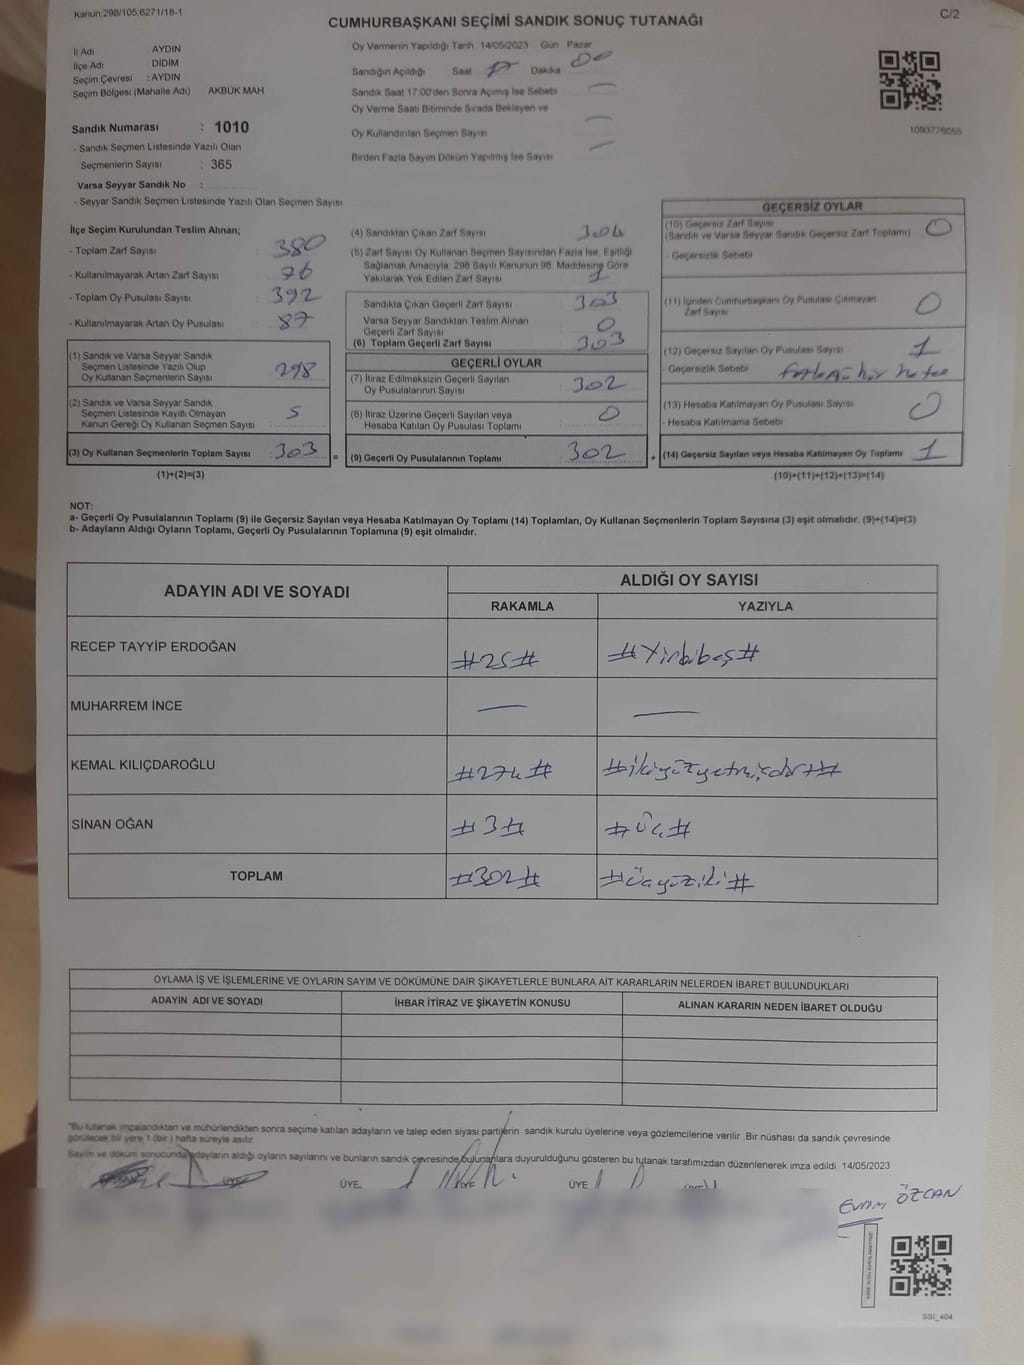 Kanun:298/105,6271/18-1
C/2
CUMHURBAŞKANI SEÇİMİ SANDIK SONUÇ TUTANAĞI
İl Adı AYDIN
İlçe Adı DİDİM
Seçim Çevresi : AYDIN
Seçim Bölgesi (Mahalle Adı) AKBÜK MAH
Sandık Numarası : 1010
- Sandık Seçmen Listesinde Yazılı Olan
Seçmenlerin Sayısı : 365
Varsa Seyyar Sandık No :
- Seyyar Sandık Seçmen Listesinde Yazılı Olan Seçmen Sayısı
Oy Vermenin Yapıldığı Tarih 14/05/2023 Gün Pazar
Sandığın Açıldığı Saat 17 Dakika 00
Sandık Saat 17:00'den Sonra Açımış İse Sebebi
Oy Verme Saati Bitiminde Sırada Bekleyen ve
Oy Kullandırılan Seçmen Sayısı
Birden Fazla Sayım Döküm Yapılmış İse Sayısı
1093776055
İlçe Seçim Kurulundan Teslim Alınan;
- Toplam Zarf Sayısı : 380
- Kullanılmayarak Artan Zarf Sayısı : 76
- Toplam Oy Pusulası Sayısı : 392
- Kullanılmayarak Artan Oy Pusulası : 87
(1) Sandık ve Varsa Seyyar Sandık
Seçmen Listesinde Yazılı Olup
Oy Kullanan Seçmenlerin Sayısı 298
(2) Sandık ve Varsa Seyyar Sandık
Seçmen Listesinde Kayıtlı Olmayan
Kanun Gereği Oy Kullanan Seçmen Sayısı 5
(3) Oy Kullanan Seçmenlerin Toplam Sayısı 303 =
(1)+(2)=(3)
(4) Sandıktan Çıkan Zarf Sayısı 304
(5) Zarf Sayısı Oy Kullanan Seçmen Sayısından Fazla İse, Eşitliği
Sağlamak Amacıyla, 298 Sayılı Kanunun 98. Maddesine Göre
Yakılarak Yok Edilen Zarf Sayısı 1
Sandıkta Çıkan Geçerli Zarf Sayısı 303
Varsa Seyyar Sandıktan Teslim Alınan
Geçerli Zarf Sayısı 0
(6) Toplam Geçerli Zarf Sayısı 303
GEÇERLİ OYLAR
(7) İtiraz Edilmeksizin Geçerli Sayılan
Oy Pusulalarının Sayısı 302
(8) İtiraz Üzerine Geçerli Sayılan veya
Hesaba Katılan Oy Pusulası Toplamı 0
(9) Geçerli Oy Pusulalarının Toplamı 302 +
GEÇERSİZ OYLAR
(10) Geçersiz Zarf Sayısı
(Sandık ve Varsa Seyyar Sandık Geçersiz Zarf Toplamı) 0
- Geçersizlik Sebebi
(11) İçinden Cumhurbaşkanı Oy Pusulası Çıkmayan
Zarf Sayısı 0
(12) Geçersiz Sayılan Oy Pusulası Sayısı 1
- Geçersizlik Sebebi
(13) Hesaba Katılmayan Oy Pusulası Sayısı 0
- Hesaba Katılmama Sebebi
(14) Geçersiz Sayılan veya Hesaba Katılmayan Oy Toplamı 1
(10)+(11)+(12)+(13)=(14)
NOT:
a- Geçerli Oy Pusulalarının Toplamı (9) ile Geçersiz Sayılan veya Hesaba Katılmayan Oy Toplamı (14) Toplamları, Oy Kullanan Seçmenlerin Toplam Sayısına (3) eşit olmalıdır. (9)+(14)=(3)
b- Adayların Aldığı Oyların Toplamı, Geçerli Oy Pusulalarının Toplamına (9) eşit olmalıdır.
ADAYIN ADI VE SOYADI
ALDIĞI OY SAYISI
RAKAMLA YAZIYLA
RECEP TAYYİP ERDOĞAN #25# #Yirmibeş#
MUHARREM İNCE — —
KEMAL KILIÇDAROĞLU #274# #ikiyüzyetmişdört#
SİNAN OĞAN #3# #Üç#
TOPLAM #302# #Üçyüziki#
OYLAMA İŞ VE İŞLEMLERİNE VE OYLARIN SAYIM VE DÖKÜMÜNE DAİR ŞİKAYETLERLE BUNLARA AİT KARARLARIN NELERDEN İBARET BULUNDUKLARI
ADAYIN ADI VE SOYADI İHBAR İTİRAZ VE ŞİKAYETİN KONUSU ALINAN KARARIN NEDEN İBARET OLDUĞU
*Bu tutanak imzalandıktan ve mühürlendikten sonra seçime katılan adayların ve talep eden siyasi partilerin sandık kurulu üyelerine veya gözlemcilerine verilir .Bir nüshası da sandık çevresinde
görülecek bir yere 1 (bir ) hafta süreyle asılır.
Sayım ve döküm sonucunda adayların aldığı oyların sayılarını ve bunların sandık çevresinde bulunanlara duyurulduğunu gösteren bu tutanak tarafımızdan düzenlenerek imza edildi. 14/05/2023
ÜYE ÜYE ÜYE ÜYE
ÖZCAN
SSI_404